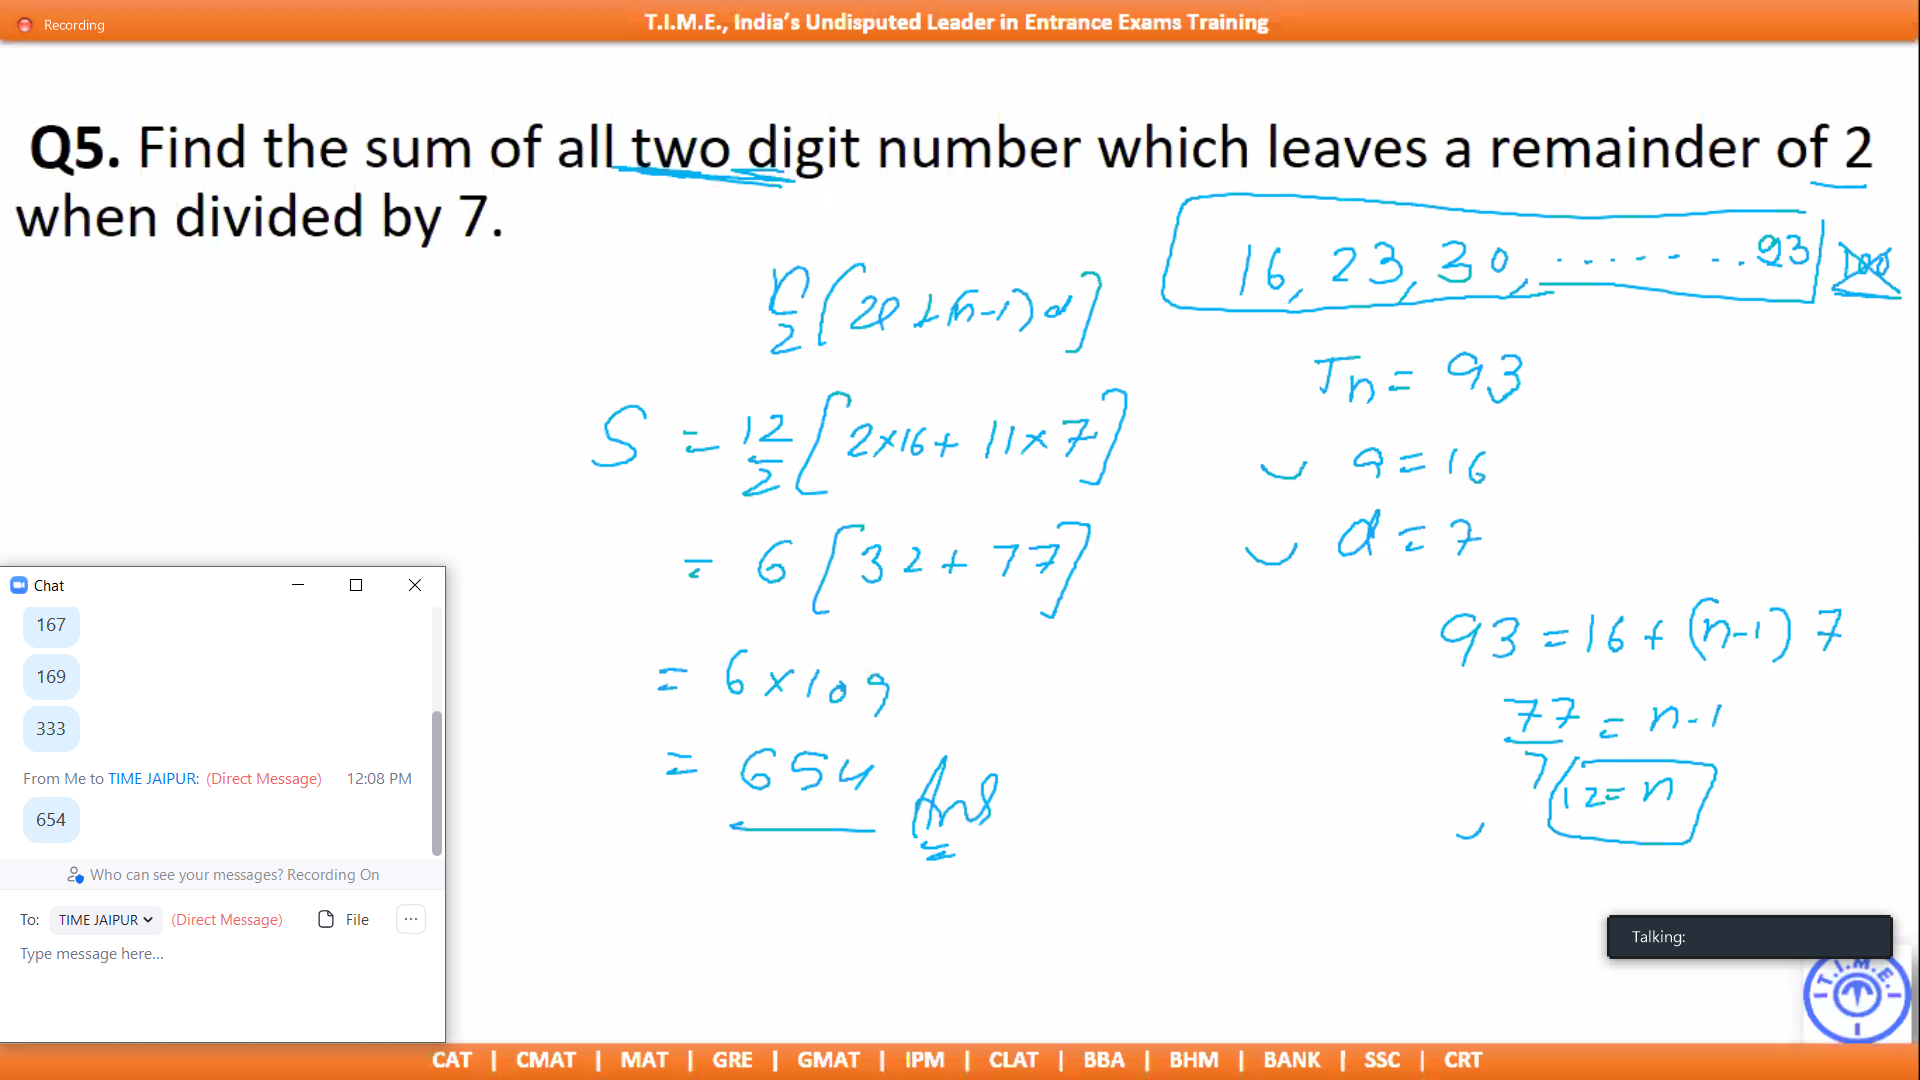 Recording
T.I.M.E., India's Undisputed Leader in Entrance Exams Training
Q5. Find the sum of all two digit number which leaves a remainder of 2
when divided by 7.
16, 23, 30, ........ 93 100
n/2 [2a + (n-1) d]
Tn = 93
S = 12/2 [2×16 + 11×7]
a = 16
= 6 [32 + 77]
d = 7
= 6 × 109
93 = 16 + (n-1) 7
= 654 Ans
77/7 = n-1
12 = n
Chat
167
169
333
From Me to TIME JAIPUR: (Direct Message) 12:08 PM
654
Who can see your messages? Recording On
To: TIME JAIPUR (Direct Message) File ...
Type message here...
Talking:
T.I.M.E.
CAT | CMAT | MAT | GRE | GMAT | IPM | CLAT | BBA | BHM | BANK | SSC | CRT